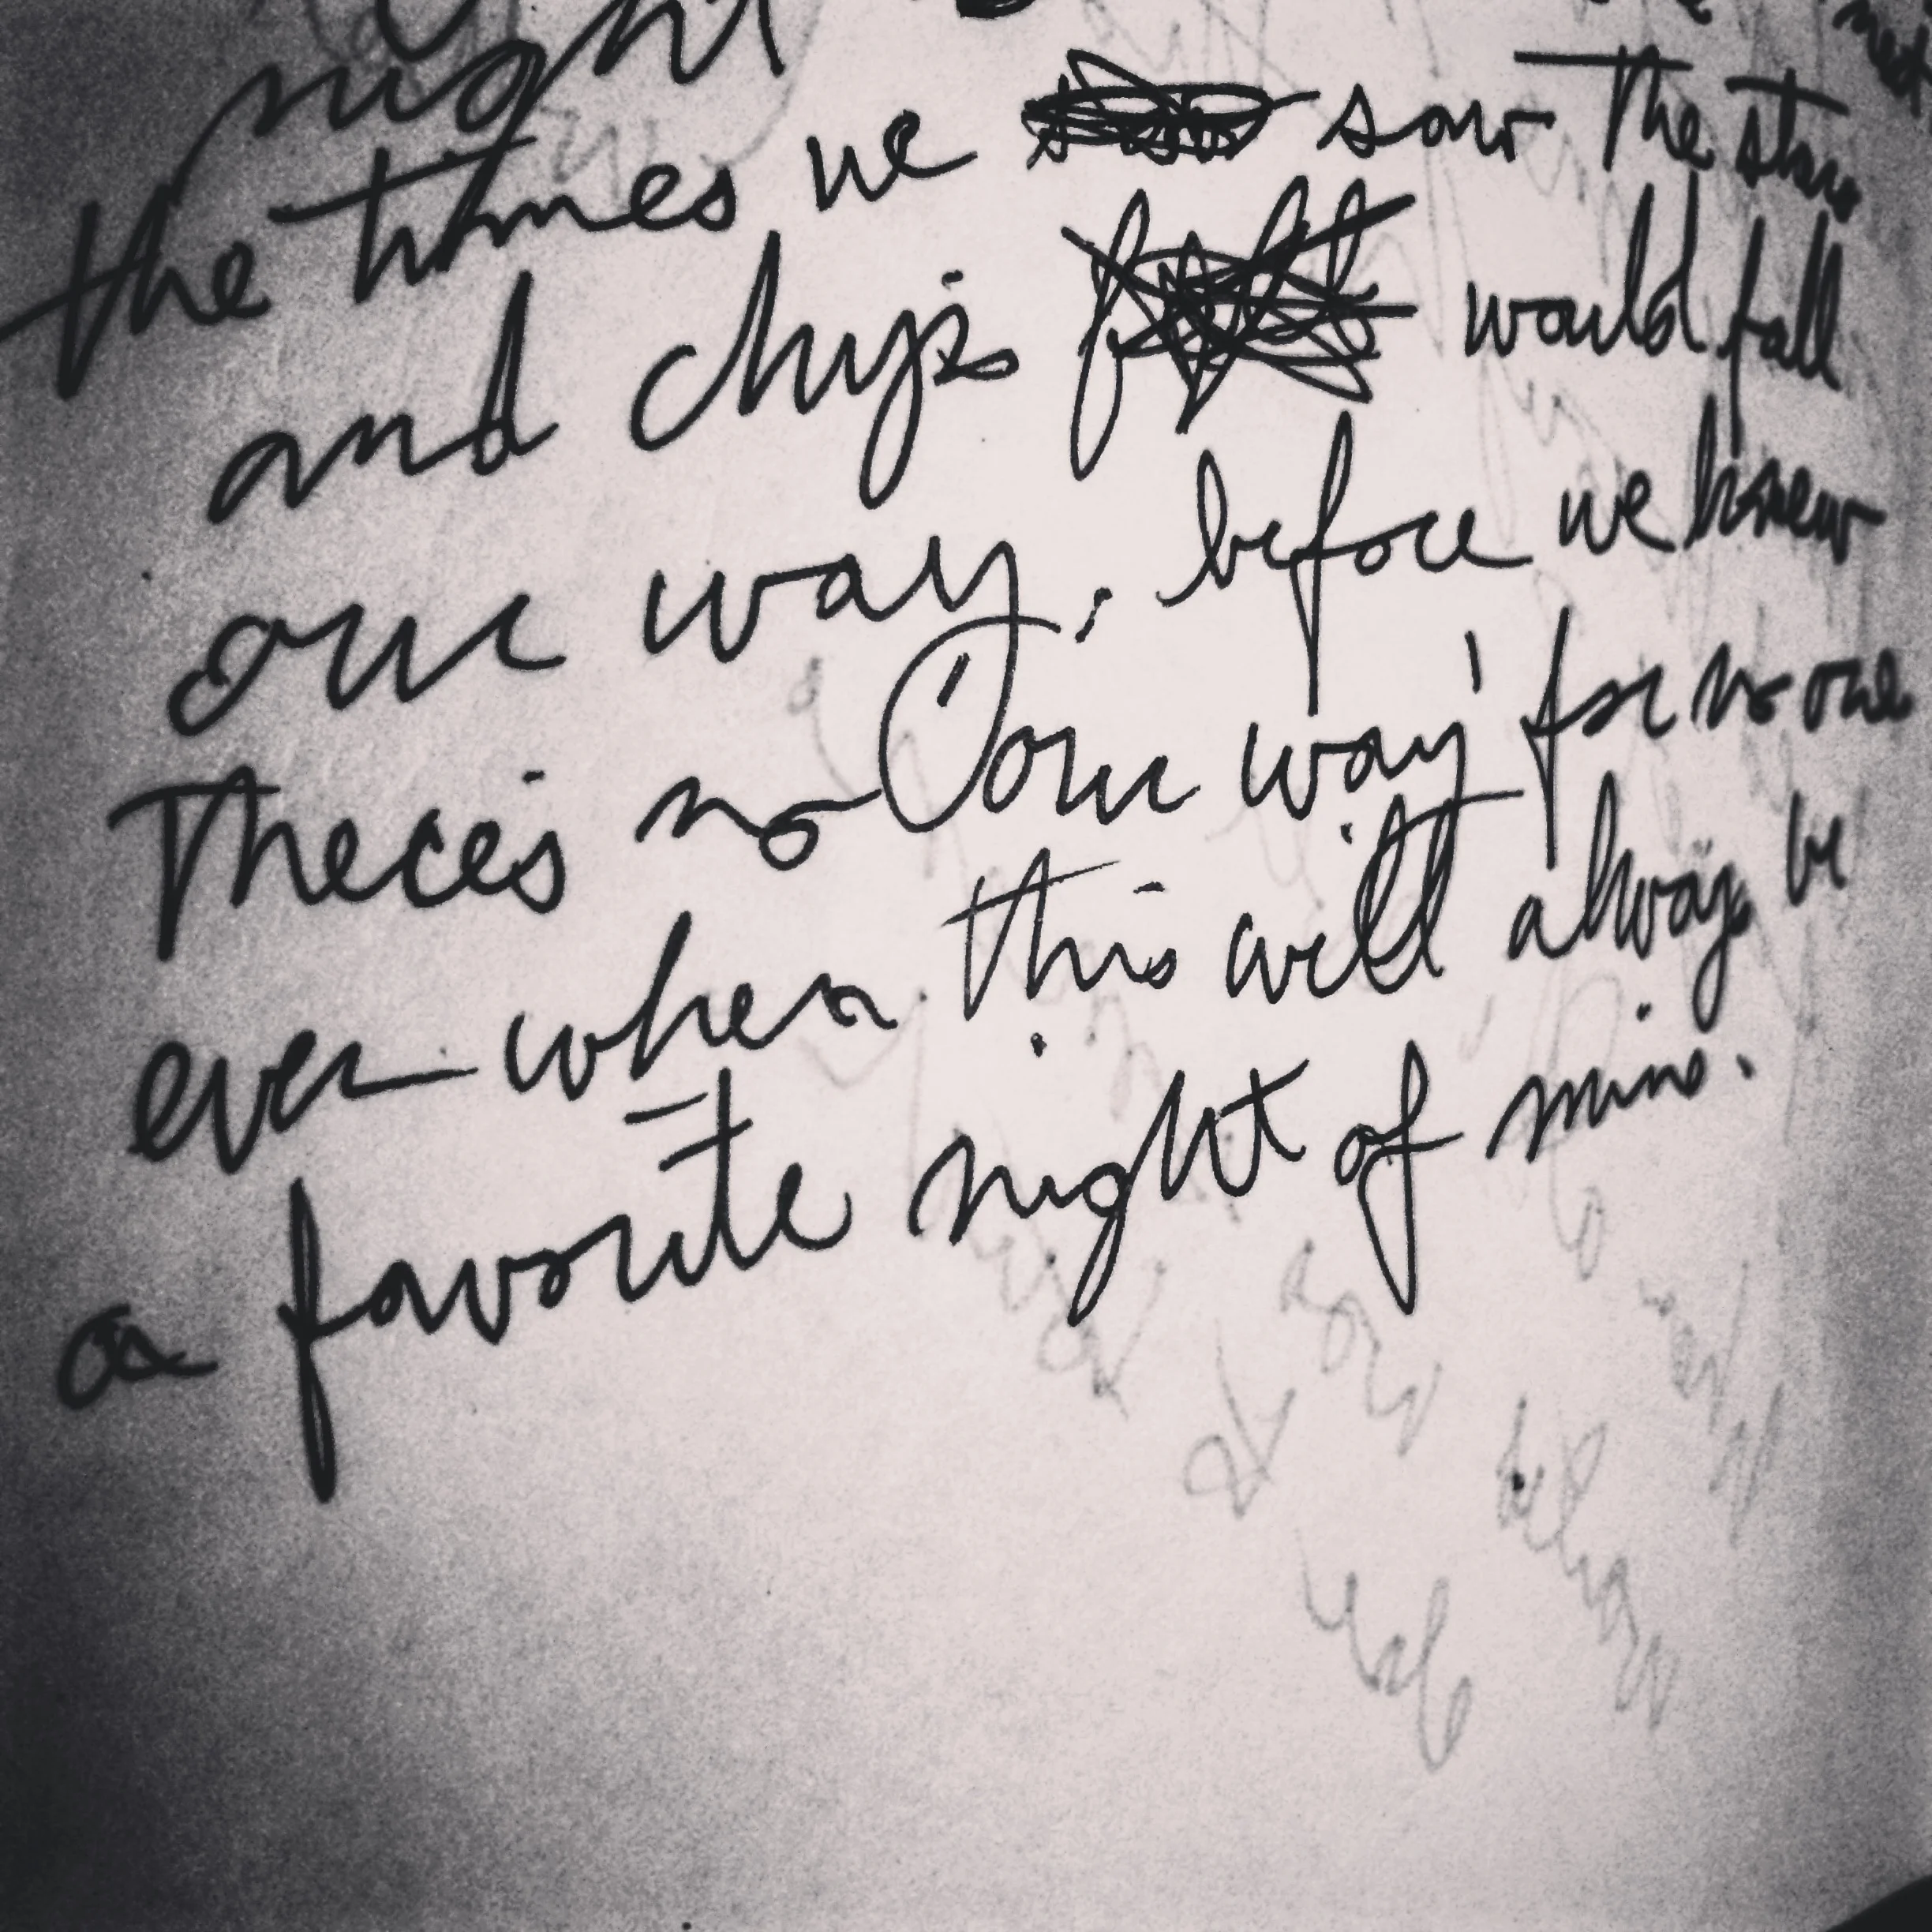 night
the times we saw the stars
and chips would fall
our way, before we knew
There's no 'our way' for no one
ever when this will always be
a favorite night of mine.